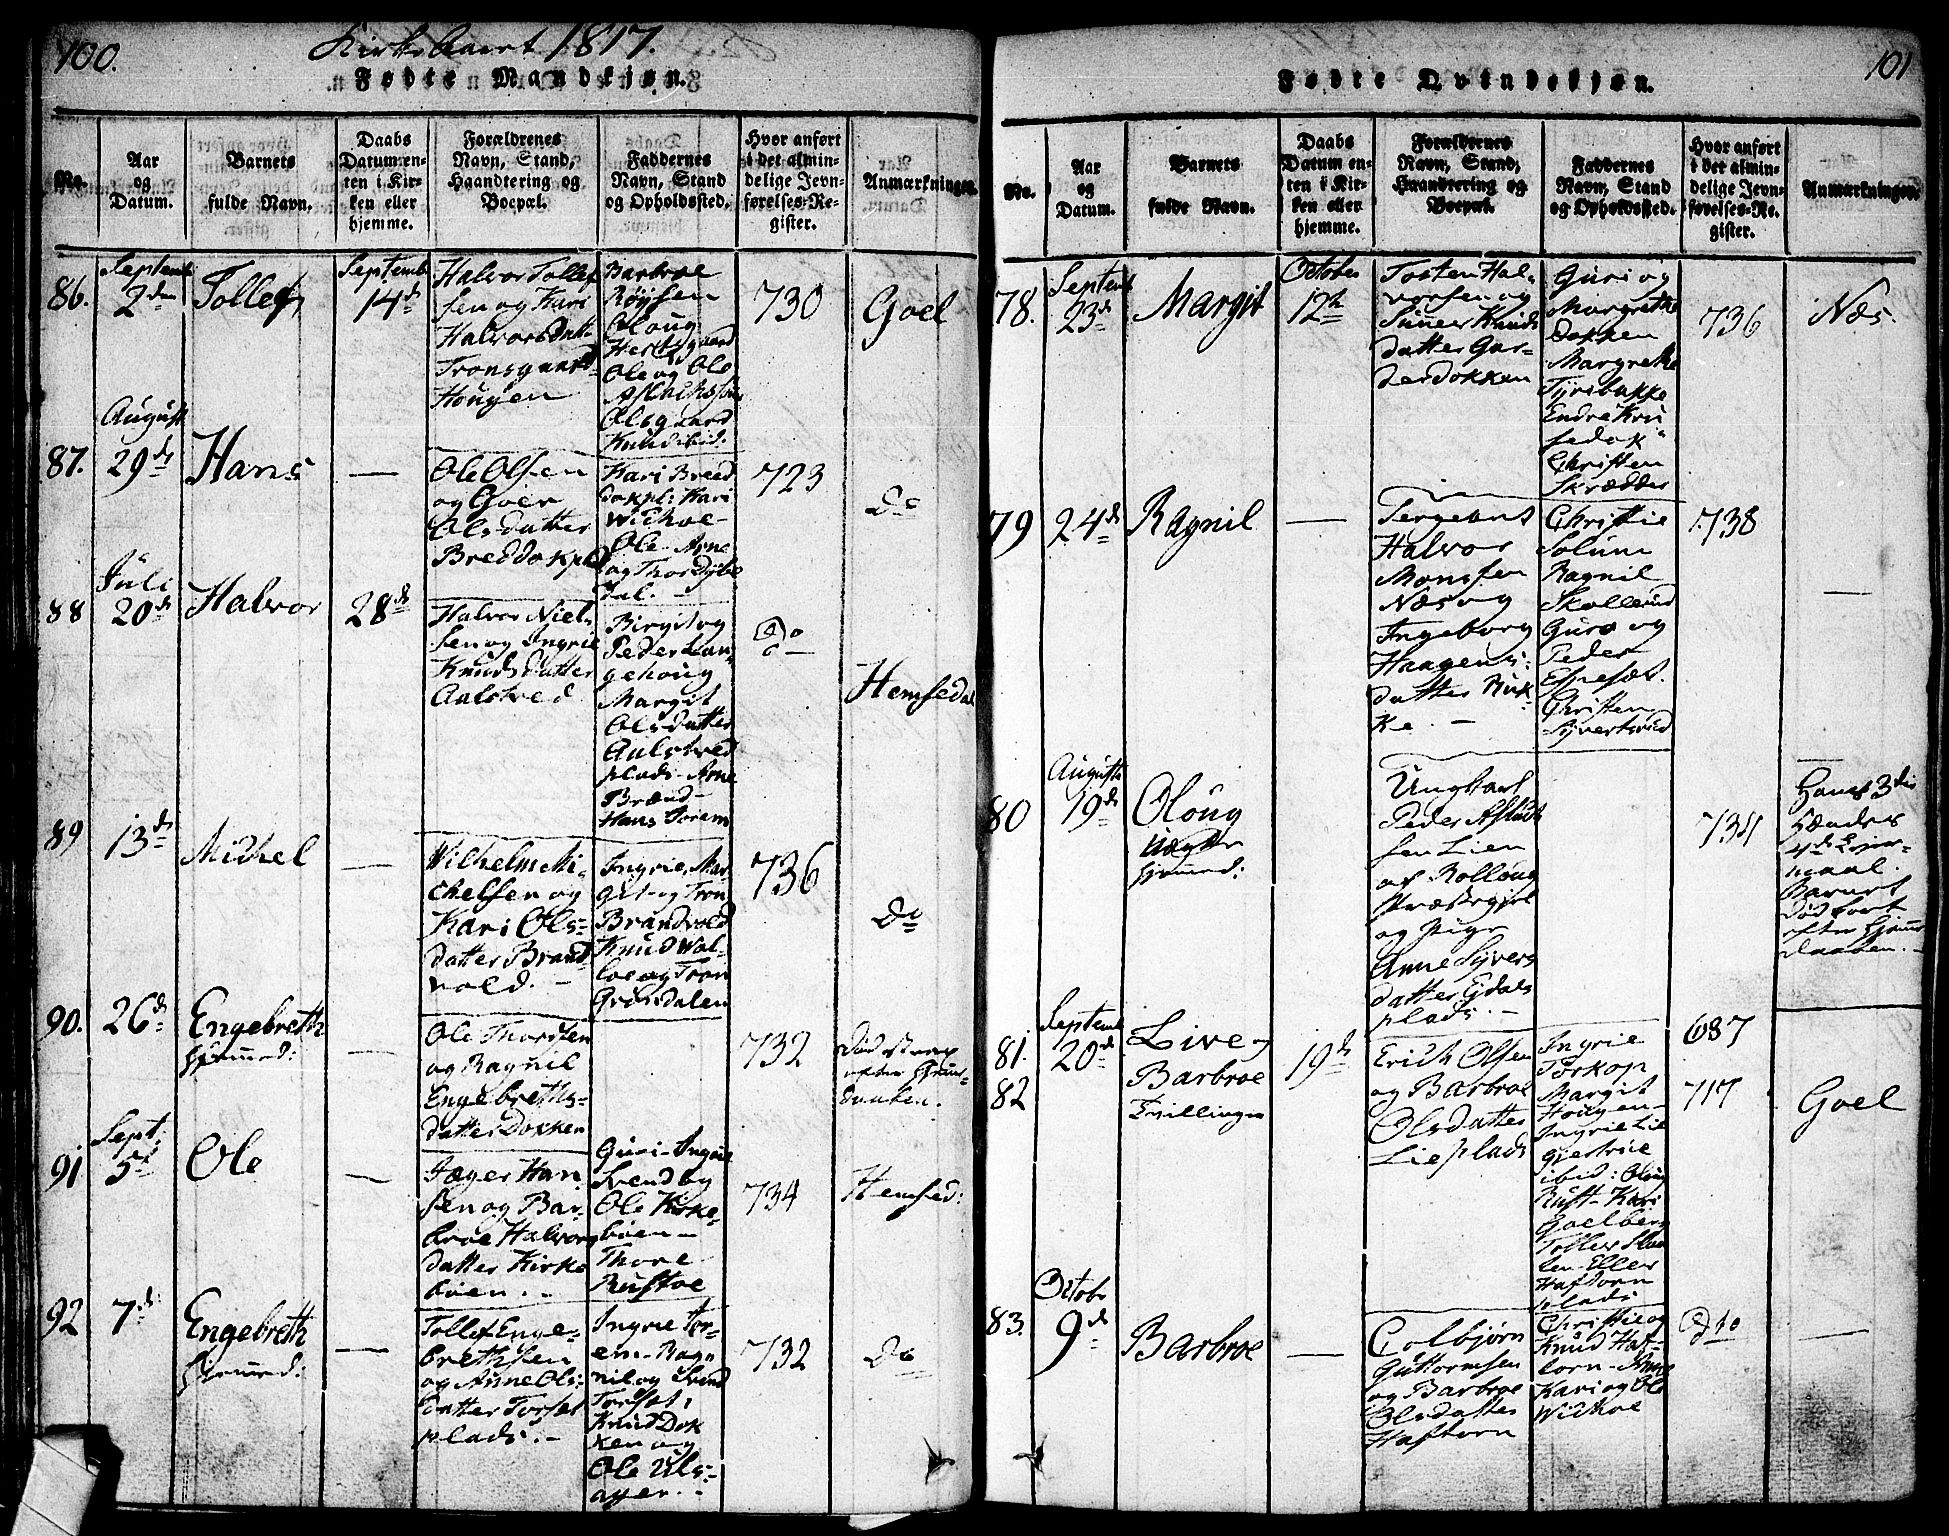 100.
Kirkeaaret 1817.
Fødte Mandkjøn.
No.
Aar
og
Datum.
Barnets
fulde Navn.
Daabs
Datum en-
ten i Kir-
ken eller
hjemme.
Forældrenes
Navn, Stand,
Haandtering og
Boepæl.
Faddernes
Navn, Stand
og Opholdssted.
Hvor anført
i det almin-
delige Jevn-
førelses-Re-
gister.
Anmærkninger.
86.
Septemb
2den
Tollef
Septemb
14d
Halvor Tollef
sen og Kari
Halvorsdatt
Tronsgaard
Hougen
Barbroe
Røysen
Oloug
Ole og Ole
Olsgaard
Knud ibid.
730
Goel
87.
August
29d
Hans
—
Ole Olsen
og Goer
Olsdatter
Breddokpl
Kari Breed
dokpl: Kari
Wilhoe
Ole, Arne
dal. –
723
do
88
Juli
20d
Halvor
28d
Halvor Niel
sen og Ingrie
Knudsdatter
Aalstved
Birgit og
Peder Lan
gehoug
Margit
Olsdatter
Aalstved
plads. Arne
Brænd –
Hans Torem
do
Hemsedal
89
13d
Michel
—
Wilhelm Mi-
chelsen og
Kari Ols-
datter Brand
vold. –
Ingrie, Mar
git og Tron
Brandvold
Knud Wol-
loe og Tron
Grøndalen
736
Do
90.
26d
Engebreth
hjemmed:
—
Ole Thordsen
og Ragnil
Engebreths-
datter Dokken
732
Død strax
efter Hjem-
daaben.
91
Sept:
5d
Ole
—
Jæger Han
sen og Bar-
broe Halvors
datter Kirke
bøen. –
Guri – Ingrie
Svendby
Ole Kirke-
bøen –
Thore
Rustoe
734
Hemsed:
92
7d
Engebreth
hjemmed:
—
Tollef Enge-
brethsen
og Anne Ols-
datter Torset
plads. –
Ingrie Tor-
em – Ragn
nil og Svend
Torset,
Knud Dok
ken og
Ole Uls-
ager. –
732
do
101
Fødte Qvindekjøn.
No.
Aar
og
Datum.
Barnets
fulde Navn.
Daabs
Datum en-
ten i Kir-
ken eller
hjemme.
Forældrenes
Navn, Stand,
Haandtering og
Boepæl.
Faddernes
Navn, Stand
og Opholdssted.
Hvor anført
i det almin-
delige Jevn-
førelses-Re-
gister.
Anmærkninger.
78.
Septemb
23d
Margit
October
12te
Tosten Hal-
vorsen og
Siner Knuds
datter Gar-
derdokken
Guri og
Margrethe
Dokken
Margrethe
Tyribakke
Endre Kru
sedok
Christen
Skrædder
736
Næs.
79
24d
Ragnil
—
Sergeant
Halvor
Monssen
Næs og
Ingeborg
Haagens-
datter Ruk
ke. –
Christie
Solum
Ragnil
Skollerud
Guro og
Peder
Espeset.
Christen
Syvertsrud
738
—
80
Augusti
19d
Oloug
Uægte
hjemmed:
Ungkarl
Peder Aslach
sen Lien
af Rolloug
Præstegjel
og Pige
Anne Syvers
datter Eidals
plads. –
734
Hans 3die
hendes
4de Leier-
maal.
Barnet
død kort
efter Hjemme
daaben. –
81.
82
Septemb
20d
Live og
Barbroe
Tvillinger
19d
Erich Olsen
og Barbroe
Olsdatter
Lie plads
Ingrie
Torkop
Margit
Hougen –
Ingrie Lie
Giestrie
ibid: Oloug
Rust – Kari
Goelberg
Haftorn
plads
687
717
Goel
83.
Octobr
9d
Barbroe
—
Colbjørn
Guttormsen
og Barbroe
Olsdatter
Haftorn
Christie og
Knud Haf-
torn – Anne
Kari og Ole
Wilhoe
dto
—